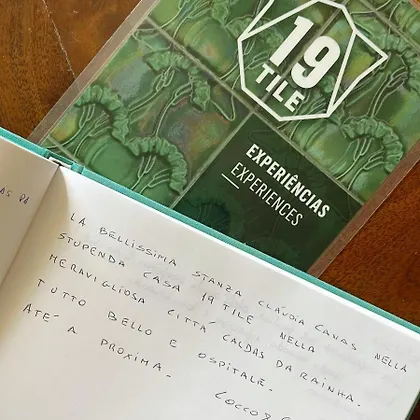 19
TILE
EXPERIÊNCIAS
EXPERIENCES
LA BELLISSIMA STANZA CLÁUDIA CANAS NELLA
STUPENDA CASA 19 TILE NELLA
MERAVIGLIOSA CITTÁ CALDAS DA RAINHA.
TUTTO BELLO E OSPITALE.
ATÉ A PROXIMA.